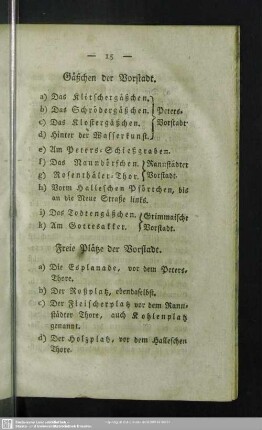 — 15 —
Gäßchen der Vorstadt.
a) Das Klitschergäßchen.
b) Das Schrödergäßchen.
c) Das Klostergäßchen.
d) Hinter der Wasserkunst.
Peters-
Vorstadt
e) Am Peters-Schießgraben.
f) Das Naundörfchen.
g) Rosenthäler-Thor.
Rannstädter
Vorstadt.
h) Vorm Halleschen Pförtchen, bis
an die Neue Straße links.
i) Das Todtengäßchen.
k) Am Gottesakker.
Grimmaische
Vorstadt.
Freie Plätze der Vorstadt.
a) Die Esplanade, vor dem Peters-
Thore.
b) Der Roßplatz, ebendaselbst.
c) Der Fleischerplatz vor dem Rann-
städter Thore, auch Kohlenplatz
genannt.
d) Der Holzplatz, vor dem Halleschen
Thore.